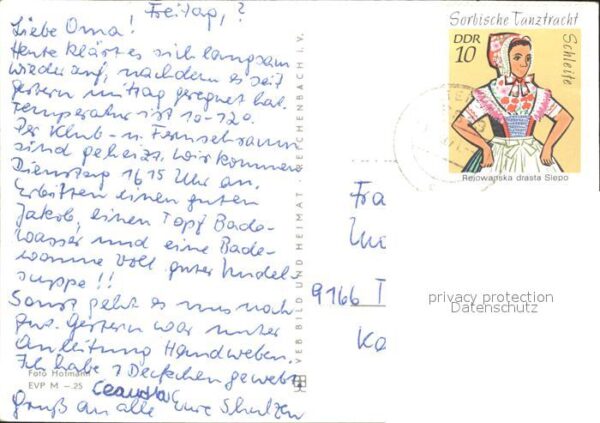 Freitag, ?
Liebe Oma!
Heute klärt es sich langsam
wieder auf, nachdem es seit
gestern mittag geregnet hat.
Temperatur ist 10-12°.
Der Klub- u. Fernsehraum
sind geheizt. Wir kommen
Dienstag 16 15 Uhr an.
Erbitten einen guten
Jakob, einen Topf Bade-
wasser und eine Bade-
wanne voll guter Nudel-
suppe!!
Sonst geht es uns noch
gut. Gestern war unter
Anleitung Handweben.
Ich habe 2 Deckchen gewebt.
Claudia
Gruß an alle Eure Shulzen
Foto Hofmann
EVP M -.25
VEB BILD UND HEIMAT REICHENBACH I. V.
Sorbische Tanztracht
DDR
10
Schleife
Rejowańska drasta Slepo
Fra
9166
privacy protection
Datenschutz